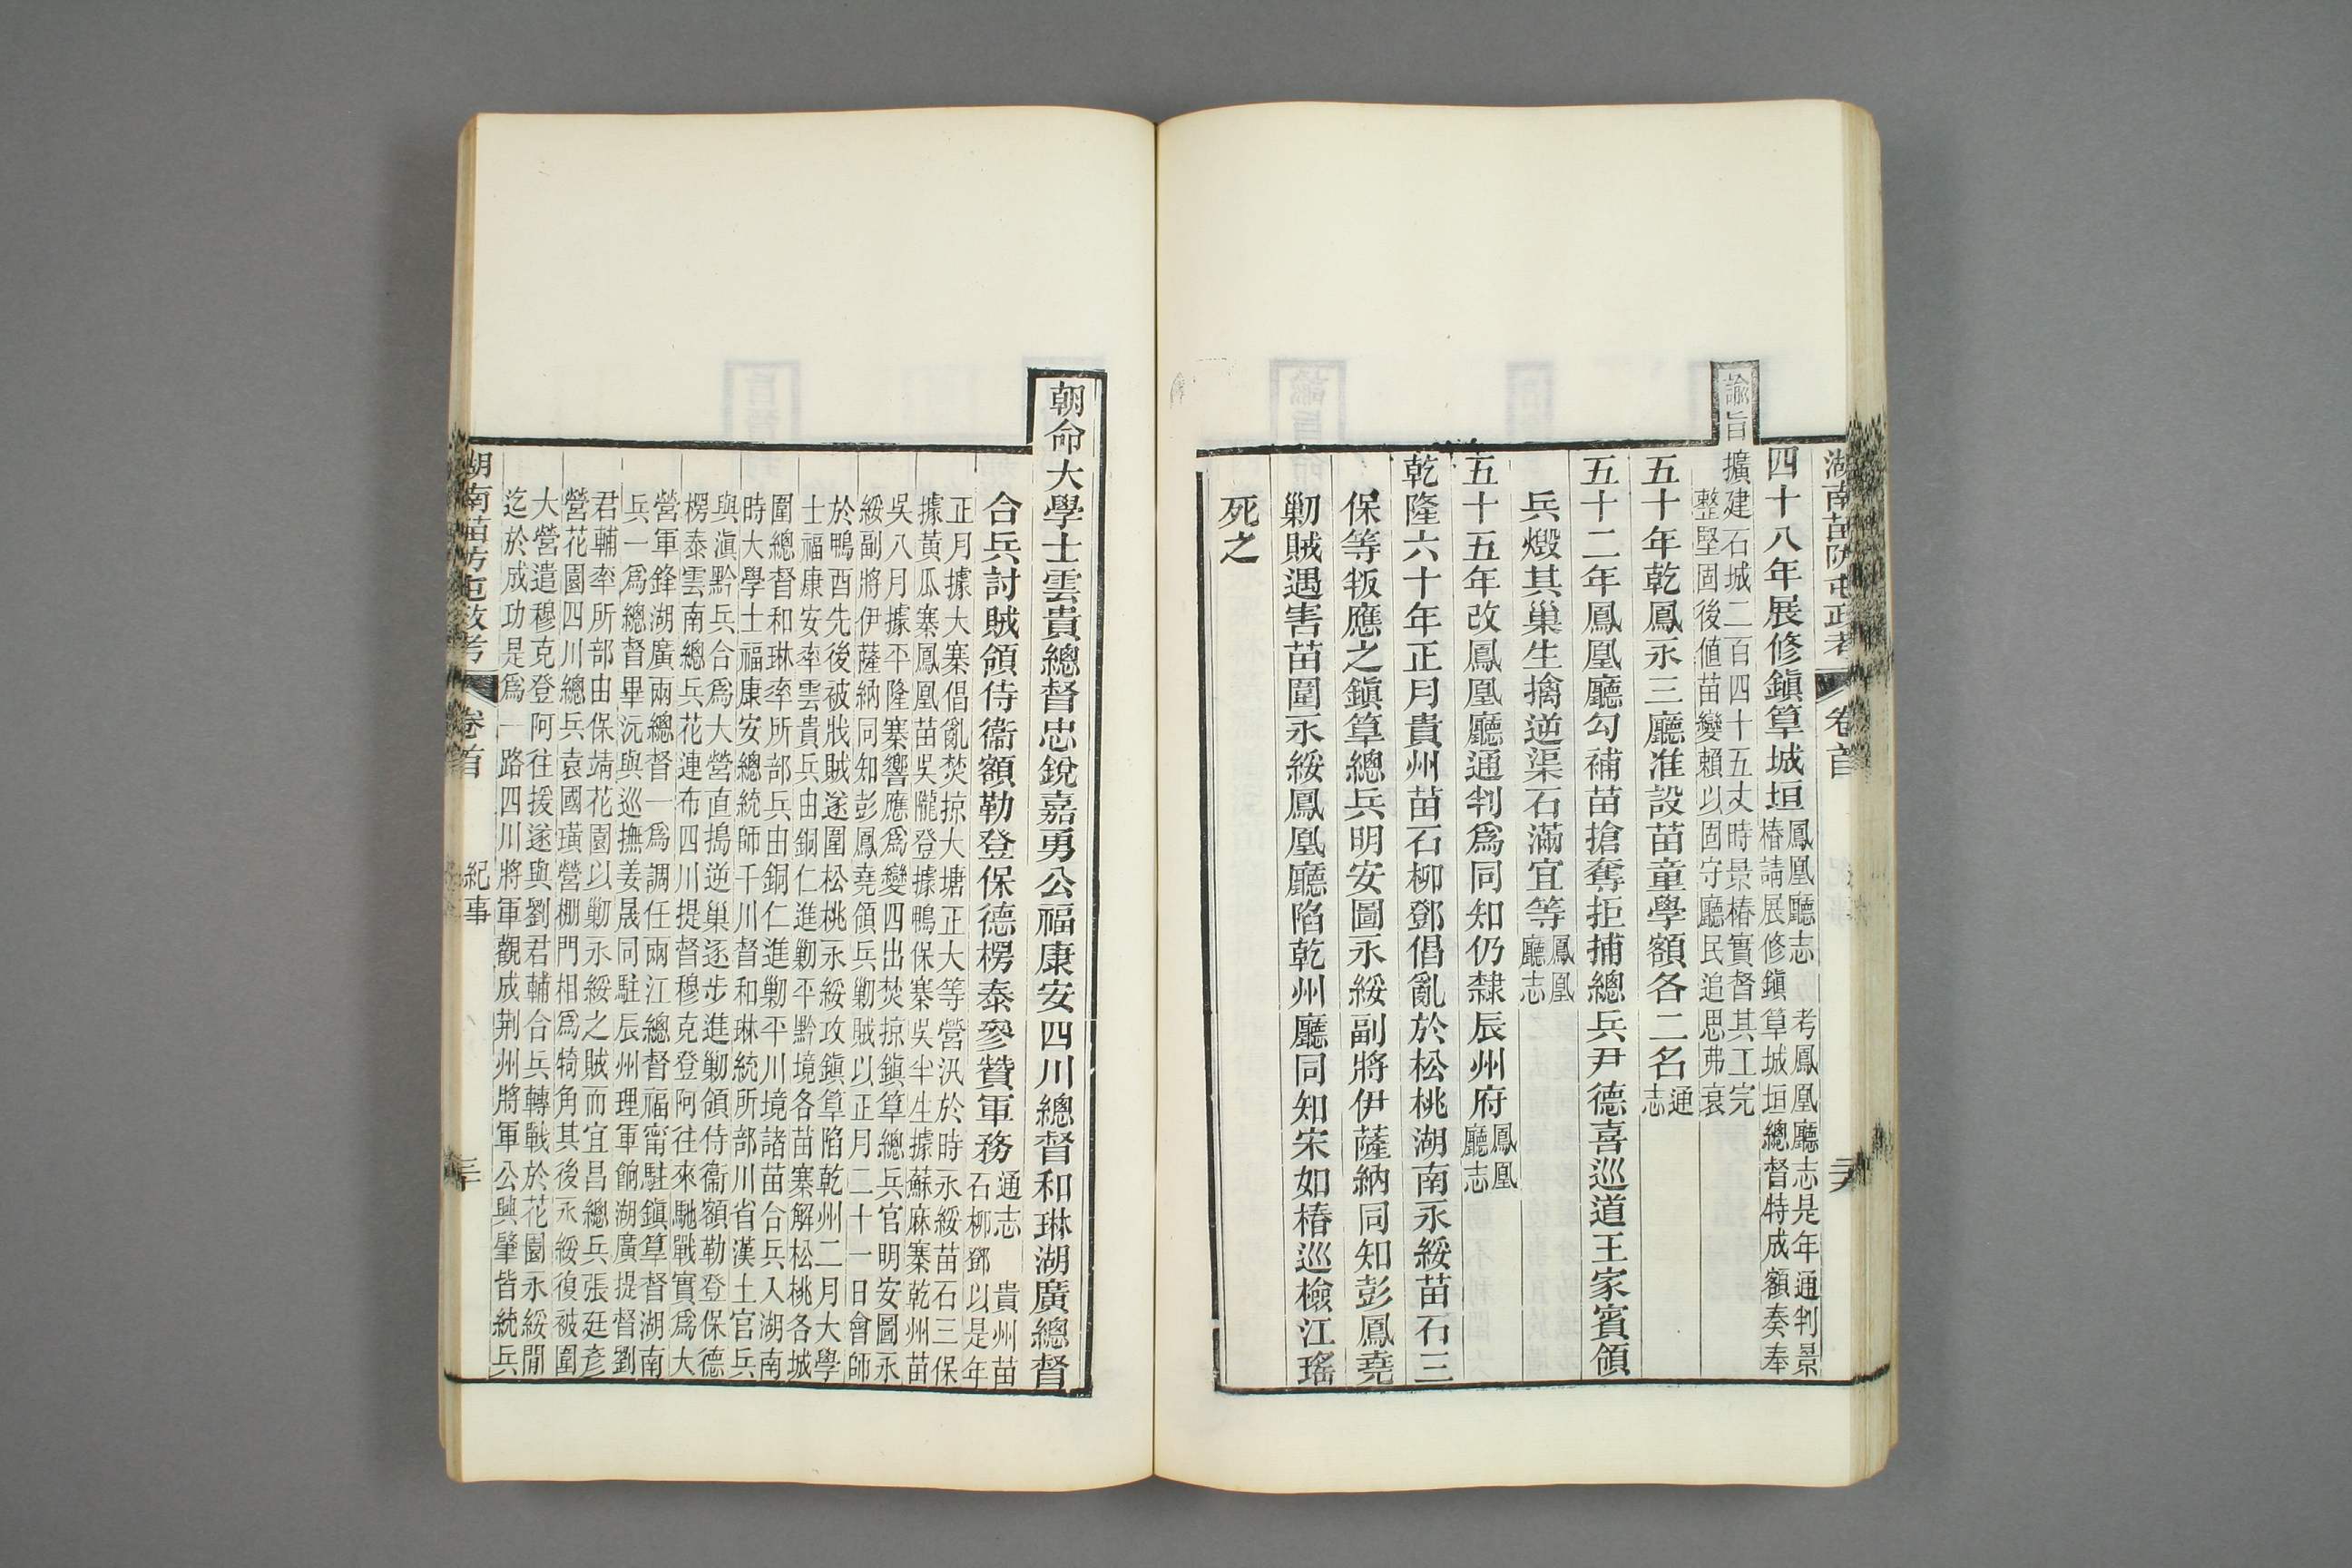 湖南苗防屯政考 卷首
四十八年展修鎮筸城垣鳳凰廳志 考鳳凰廳志是年通判景
椿請展修鎮筸城垣總督特成額奏奉
諭旨擴建石城二百四十五丈時景椿實督其工完
整堅固後値苗變賴以固守廳民追思弗衰
五十年乾鳳永三廳准設苗童學額各二名通
志
五十二年鳳凰廳勾補苗搶奪拒捕總兵尹德喜巡道王家賓領
兵燬其巢生擒逆渠石滿宜等鳳凰
廳志
五十五年改鳳凰廳通判爲同知仍隸辰州府鳳凰
廳志
乾隆六十年正月貴州苗石柳鄧倡亂於松桃湖南永綏苗石三
保等叛應之鎮筸總兵明安圖永綏副將伊薩納同知彭鳳堯
勦賊遇害苗圍永綏鳳凰廳陷乾州廳同知宋如椿巡檢江瑤
死之
朝命大學士雲貴總督忠銳嘉勇公福康安四川總督和琳湖廣總督
合兵討賊領侍衞額勒登保德楞泰參贊軍務通志 貴州苗
石柳鄧以是年
正月據大寨倡亂焚掠大塘正大等營汛於時永綏苗石三保
據黃瓜寨鳳凰苗吳隴登據鴨保寨吳半生據蘇麻寨乾州苗
吳八月據平隆寨響應爲變四出焚掠鎮筸總兵官明安圖永
綏副將伊薩納同知彭鳳堯領兵勦賊以正月二十一日會師
於鴨酉先後被戕賊遂圍松桃永綏攻鎮筸陷乾州二月大學
士福康安率雲貴兵由銅仁進勦平黔境各苗寨解松桃各城
圍總督和琳率所部兵由銅仁進勦平川境諸苗合兵入湖南
時大學士福康安總統師干川督和琳統所部川省漢土官兵
與滇黔兵合爲大營直搗逆巢逐步進勦領侍衞額勒登保德
楞泰雲南總兵花連布四川提督穆克登阿往來馳戰實爲大
營軍鋒湖廣兩總督一爲調任兩江總督福甯駐鎮筸督湖南
兵一爲總督畢沅與巡撫姜晟同駐辰州理軍餉湖廣提督劉
君輔率所部由保靖花園以勦永綏之賊而宜昌總兵張廷彥
營花園四川總兵袁國璜營棚門相爲犄角其後永綏復被圍
大營遣穆克登阿往援遂與劉君輔合兵轉戰於花園永綏間
迄於成功是爲一路四川將軍觀成荆州將軍公興肇皆統兵
湖南苗防屯政考 卷首 紀事 三十